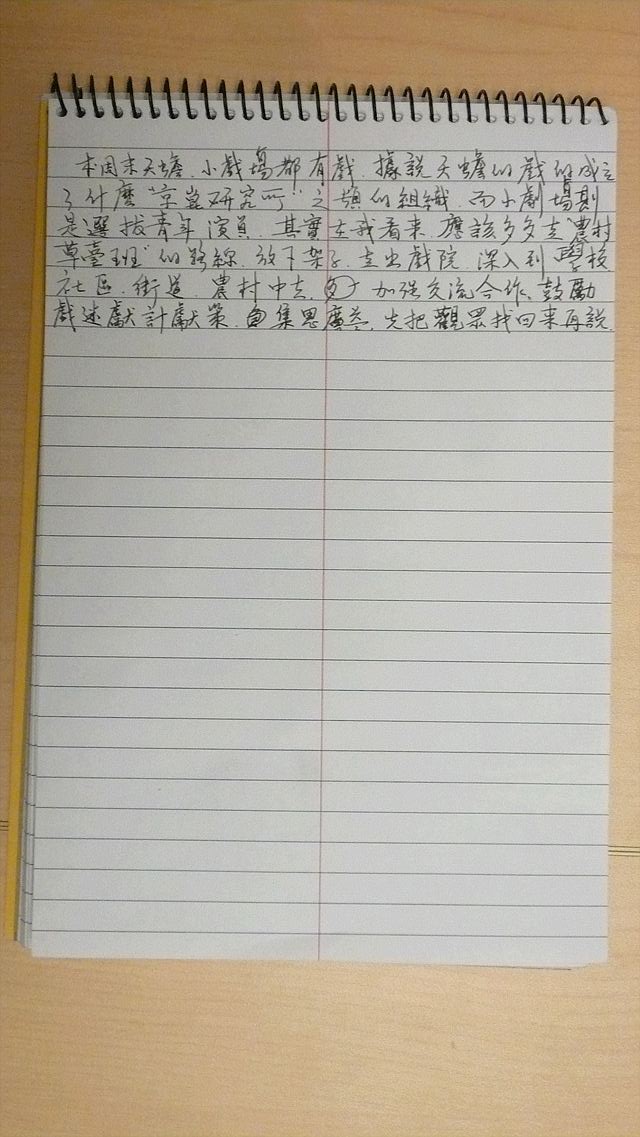 本周末天蟾、小戲場都有戲，據說天蟾的戲的成立
了什麼“京崑研究所”之類的組織，而小劇場則
是選拔青年演員，其實在我看來，應該多多走“農村
草臺班”的路線，放下架子，走出戲院，深入到學校
社區、街道、農村中去，加強交流合作，鼓勵
戲迷獻計獻策，集思廣益，先把觀眾找回來再說。